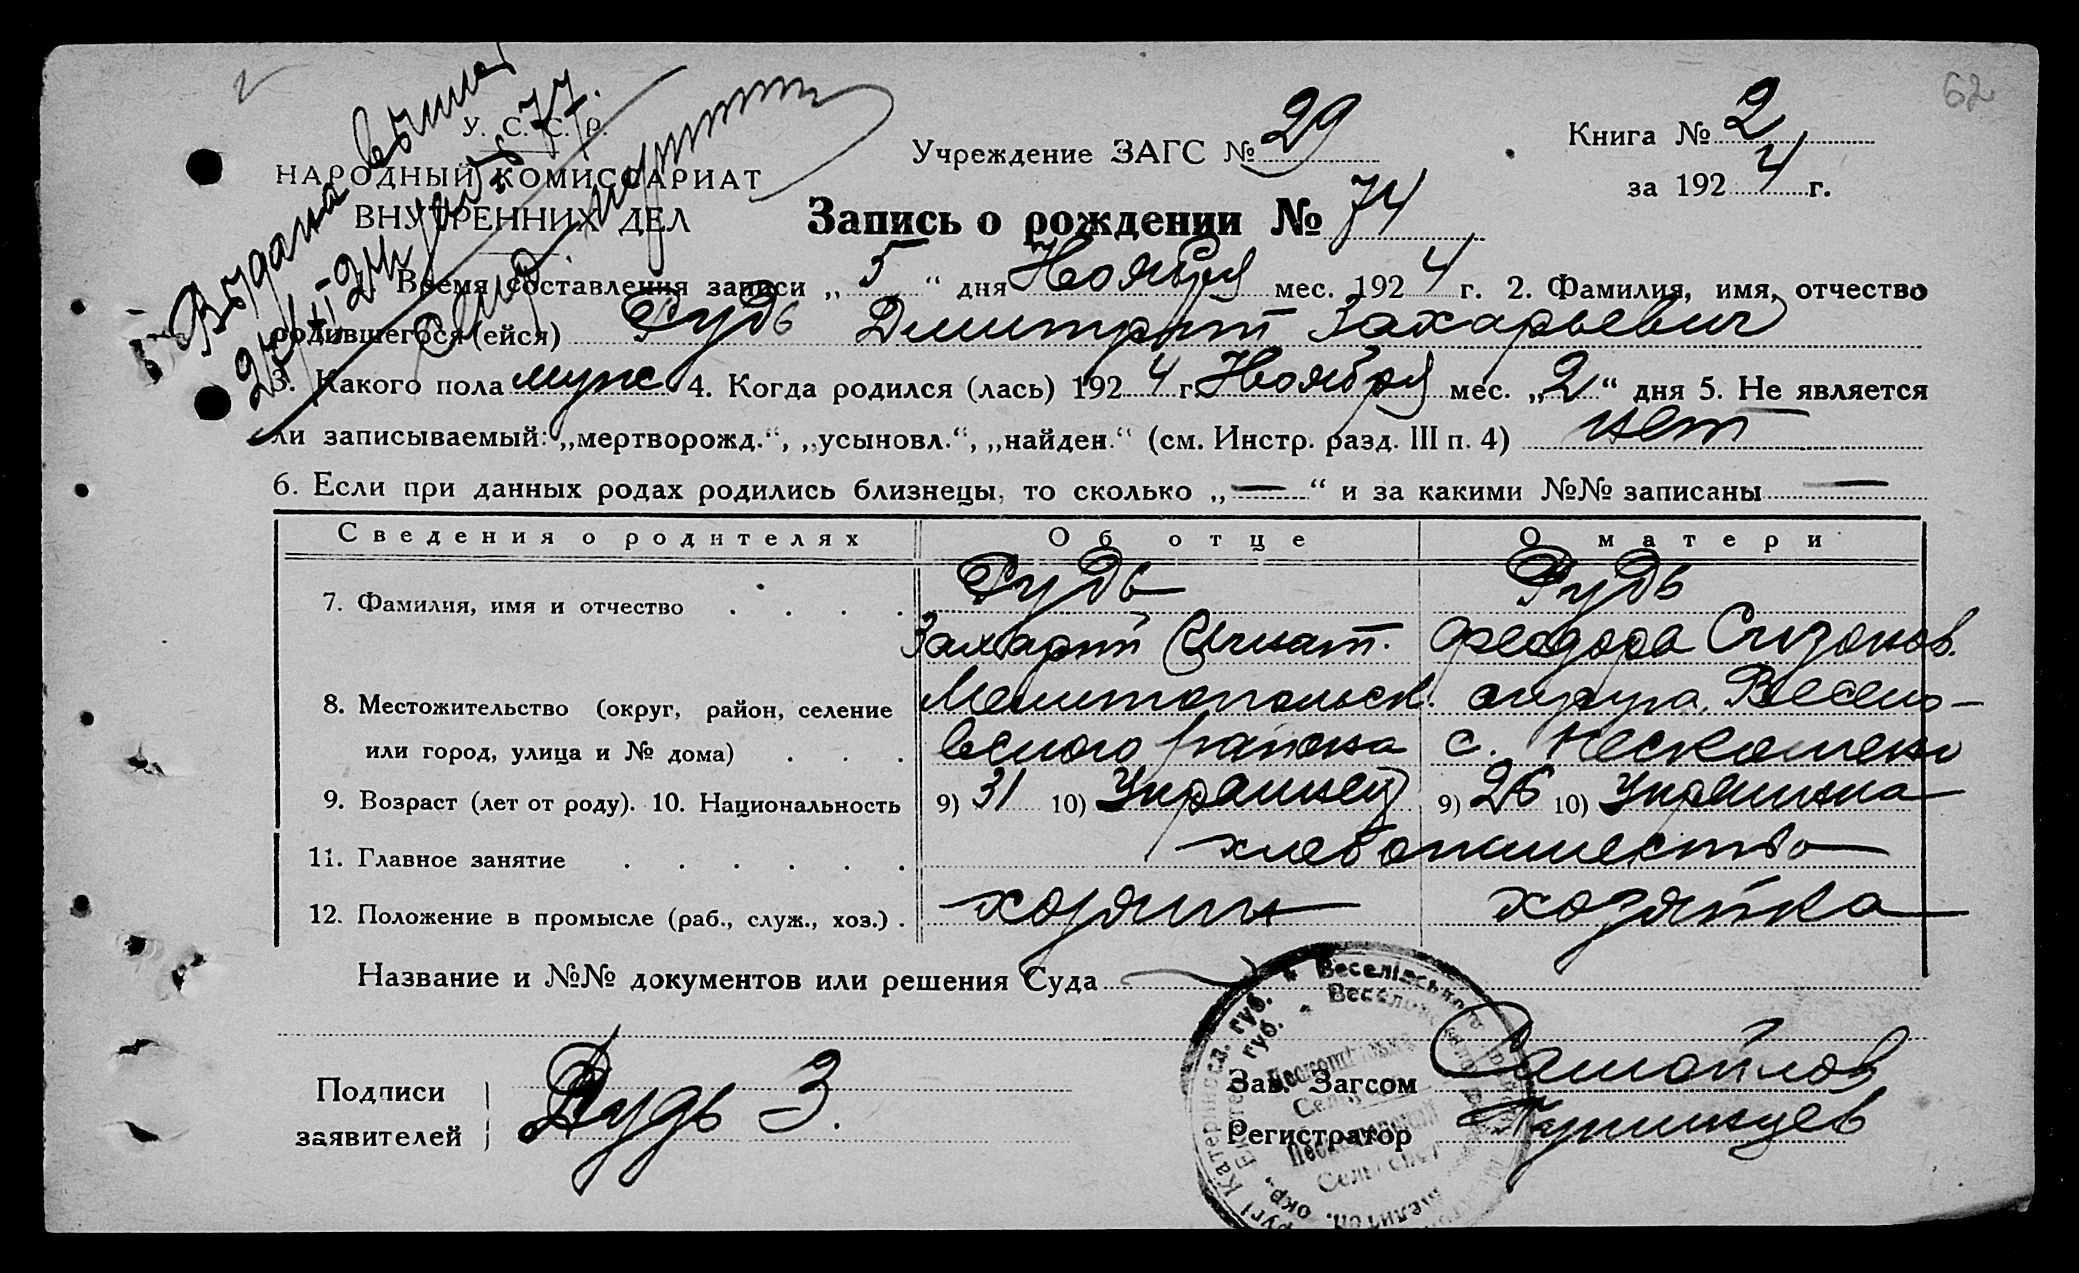 62
Выдана выпись
24/XI 24 г. за № 77.
У. С. С. Р.
НАРОДНЫЙ КОМИССАРИАТ
ВНУТРЕННИХ ДЕЛ
Учреждение ЗАГС № 29
Книга № 2
за 1924 г.
Запись о рождении № 74
Время составления записи „ 5 “ дня Ноября мес. 1924 г. 2. Фамилия, имя, отчество
родившегося (ейся) Рудь Дмитрий Захарьевич
3. Какого пола муж 4. Когда родился (лась) 1924 г. Ноября мес. „ 2 “ дня 5. Не является
ли записываемый: „мертворожд.“, „усыновл.“, „найден.“ (см. Инстр. разд. III п. 4) нет
6. Если при данных родах родились близнецы, то сколько „ — “ и за какими №№ записаны —
Сведения о родителях Об отце О матери
7. Фамилия, имя и отчество Рудь Рудь
Захарий Игнат. Феодора Сизонов.
8. Местожительство (округ, район, селение Мелитопольск. округа. Весело-
или город, улица и № дома) вского района с. Нескошено
9. Возраст (лет от роду). 10. Национальность 9) 31 10) Украинец 9) 26 10) Украинка
11. Главное занятие хлебопашество
12. Положение в промысле (раб., служ., хоз.) хозяин хозяйка
Название и №№ документов или решения Суда
Подписи
заявителей Рудь З.
Зав. Загсом Самойлов
Регистратор